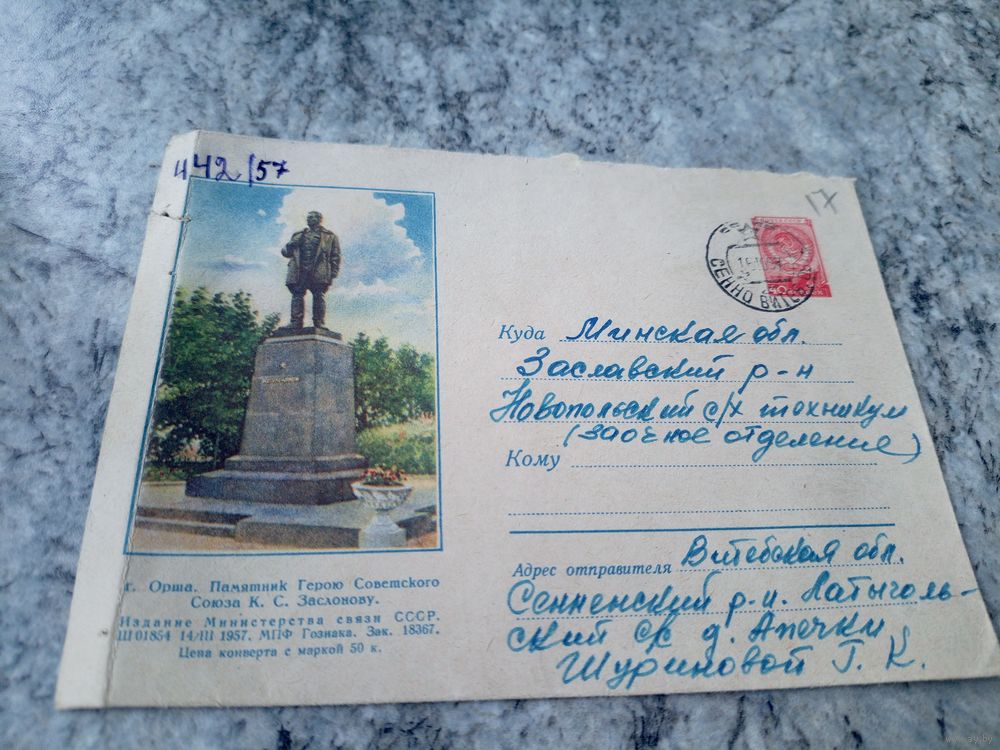 442/57
17
СЕННО ВИТ
Куда Минская обл.
Заславский р-н
Новопольский с/х техникум
(заочное отделение)
Кому
Адрес отправителя Витебская обл.
Сенненский р-н. Латыголь-
ский с/с д. Апечки
Шуриновой Г. К.
г. Орша. Памятник Герою Советского
Союза К. С. Заслонову.
Издание Министерства связи СССР.
Ш01854 14/III 1957. МПФ Гознака. Зак. 18367.
Цена конверта с маркой 50 к.